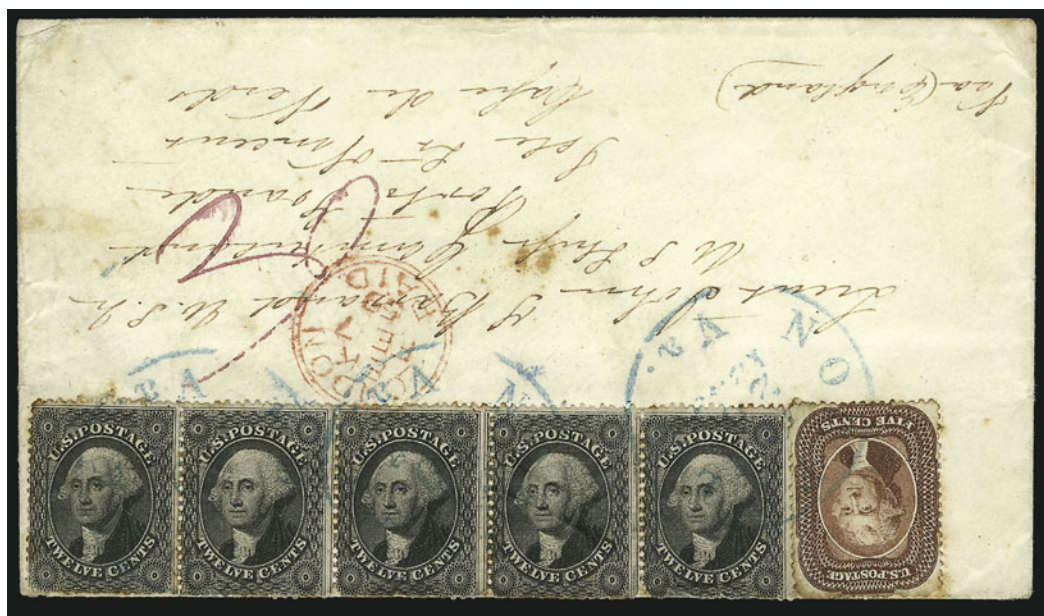 Lieut John S Barnard U.S.N
U S Ship Constellation
Porto Grande
Isle St Vincent
Cape de Verds
Via (England)
LONDON
FE
PAID
Va.
NO
Va.
U.S. POSTAGE
TWELVE CENTS
U.S. POSTAGE
TWELVE CENTS
U.S. POSTAGE
TWELVE CENTS
U.S. POSTAGE
TWELVE CENTS
U.S. POSTAGE
TWELVE CENTS
U.S. POSTAGE
FIVE CENTS